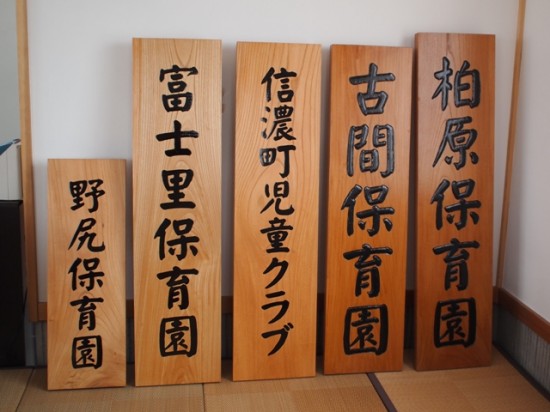 野尻保育園
富士里保育園
信濃町児童クラブ
古間保育園
柏原保育園